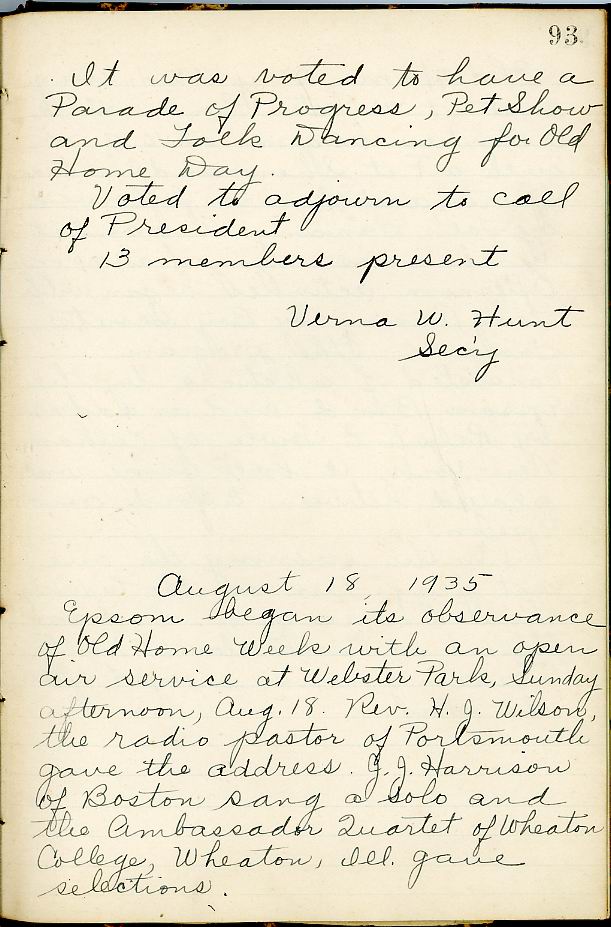 93.
It was voted to have a
Parade of Progress, Pet Show
and Folk Dancing for Old
Home Day.
Voted to adjourn to call
of President
13 members present
Verna W. Hunt
Sec'y
August 18, 1935
Epsom began its observance
of Old Home Week with an open
air service at Webster Park, Sunday
afternoon, Aug. 18. Rev. H. J. Wilson,
the radio pastor of Portsmouth
gave the address. J. J. Harrison
of Boston sang a solo and
the Ambassador Quartet of Wheaton
College, Wheaton, Ill. gave
selections.